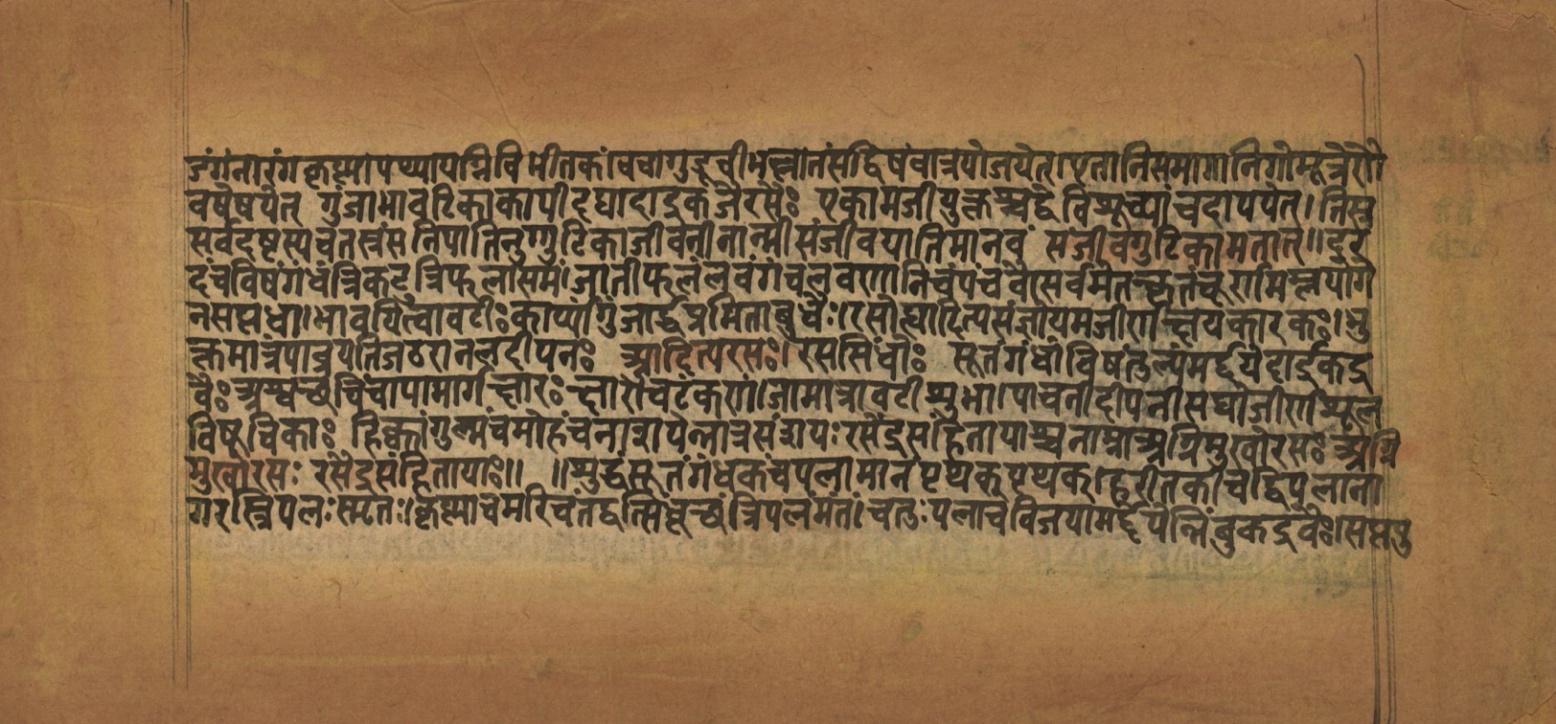 ङंगंनारंग कृष्मापथ्यापग्निविभीतकांवचागुडूचीभल्लातंसद्विषंचात्रयोजयेत्।एतानिसमागानिगोमूत्रेरोो
वपेषयेत् गुंजाभावटिकाकापीदद्यादार्दुकजैरसैः एकामजीयुक्तस्यद्वेविश्रूच्यांचदापयेत्।तिस्त्र
सर्वदष्टस्यचतस्त्रंसंनिपातिनुग्गुटिकाजीवनीनाम्नीसंजीवयातिमानवं संजीवगुटिकामतात्॥दुर
दंचविषंगंधंत्रिकटुत्रिफलासमं।जातीफलंलवंगंचलवणानिचपंचवै।सर्वमेतत्कृतंचूर्णमम्लयोगे
नसप्तधा।भावयित्वावटीःकार्प्यागुंजार्द्धप्रमिताबुधैः।रसोह्यादित्यसंज्ञोयमजीर्णक्षयकारकः।भु
क्तमात्रंपाचयतिजठरानलदीपनः आदित्यरसः।रससिंधौः सूतंगंधांविषंतुल्यंमर्द्दयेदार्द्रकद्र
वैः अश्वच्छचिंचापामार्गक्षारः क्षारोचटंकणं।जामात्रावटीश्रुभा।पाचनीदीपनीसद्योजीर्णश्रूल
विषूचिकाः हिक्कांगुल्मंचमोहंचनात्रापेलात्रसंद्रायः रसेंद्रसंहितायाम्श्चनाम्नाअग्निमुखोरसः अग्नि
मुखोरसः रसेंद्रसंहितायाः॥ ॥श्रुद्धंसूतंगंधकंचपलामानंपृथक्पृथक्।हरीतकीचद्विपलाना
गरस्त्रिपलःस्मृतः।कृष्माचमरिचंतद्वत्सिंधूच्छंत्रिपलंमतं।चतुःपलाचविजयामर्द्दयेन्निंबुकद्रवैः।सप्तपु